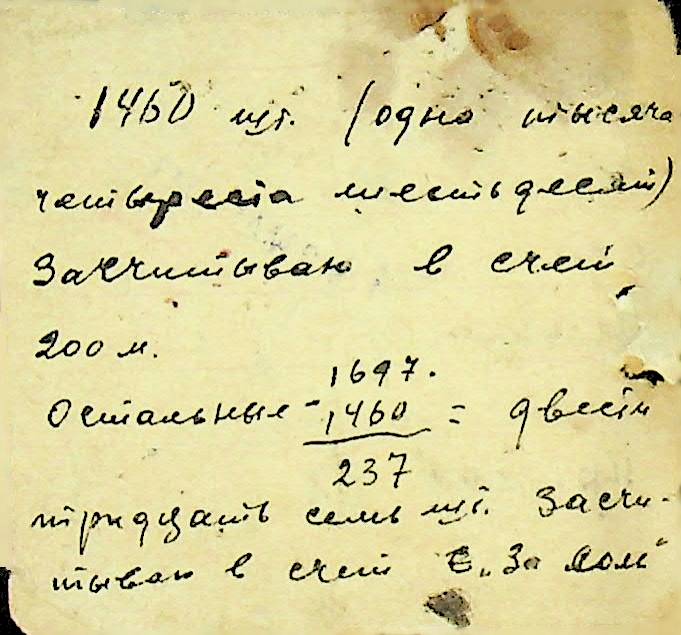 1460 шт. (одна тысяча
четыреста шестьдесят)
Засчитываю в счет
200 м.
1697.
Остальные - 1460 = двести
237
тридцать семь шт. Засчи-
тываю в счет "За